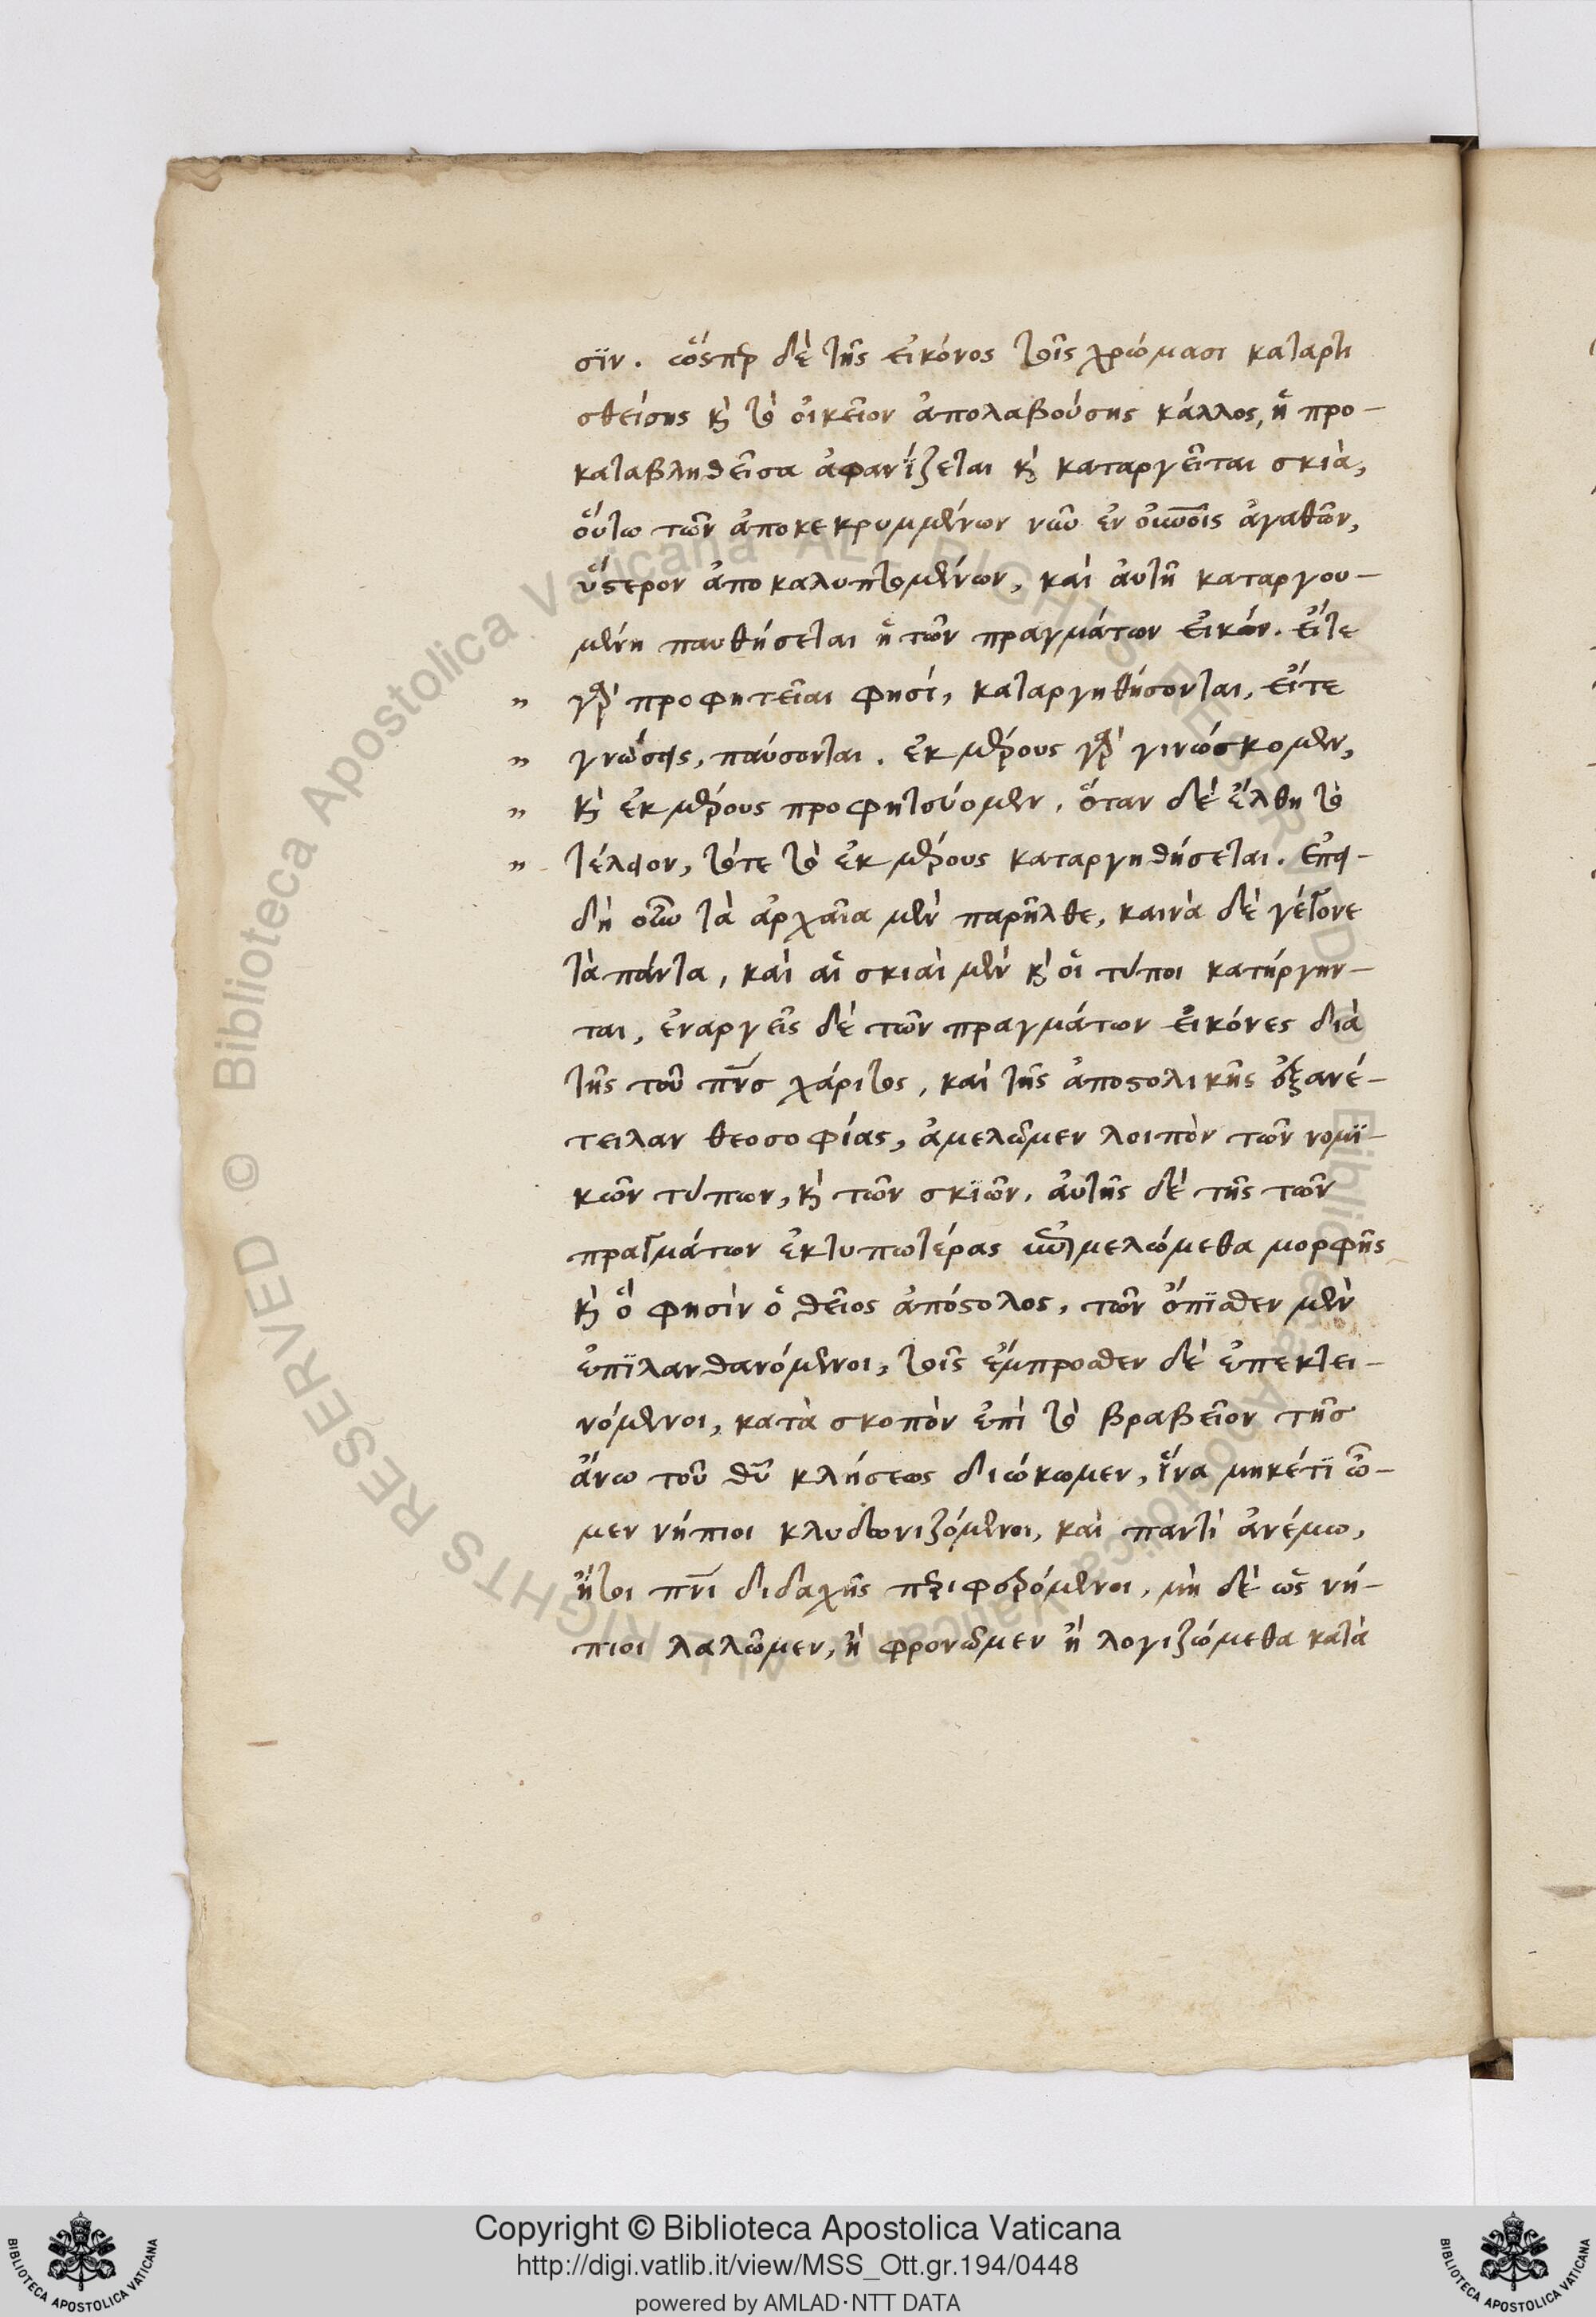 σϊν. ὥσπερ δὲ τῆς εἰκόνος τοῖς χρώμασι καταρτι
σθείσης κὶ τὸ οἰκεῖον ἀπολαβούσης κάλλος, ἡ προ-
καταβληθεῖσα ἀφανΐζεται κὶ καταργεῖται σκιὰ,
οὕτω τῶν ἀποκεκρυμμένων νῦν ἐν οὐνοῖς ἀγαθῶν,
ὕστερον ἀποκαλυπτομένων, καὶ αὐτὴ καταργου-
μένη παυθήσεται ἡ τῶν πραγμάτων εἰκών. εἴτε
" γὰρ προφητεῖαι φησί, καταργηθήσονται, εἴτε
" γνώσεις, παύσονται. ἐκ μέρους γὰρ γινώσκομεν,
" κὶ ἐκ μέρους προφητεύομεν. ὅταν δὲ ἔλθη τὸ
" τέλειον, τότε τὸ ἐκ μέρους καταργηθήσεται. ἐπει-
δὴ οὖν τὰ ἀρχαῖα μὲν παρῆλθε, καινὰ δὲ γέγονε
τὰ πάντα, καὶ αἱ σκιαὶ μὲν κὶ οἱ τύποι κατήργην-
ται, ἐναργεῖς δὲ τῶν πραγμάτων εἰκόνες διὰ
τῆς τοῦ πνσ χάριτος, καὶ τῆς ἀποστολικῆς ἐξανέ-
τειλαν θεοσοφίας, ἀμελῶμεν λοιπὸν τῶν νομϊ-
κῶν τύπων, κὶ τῶν σκϊῶν. αὐτῆς δὲ τῆς τῶν
πραγμάτων ἐκτυπωτέρας ἐπιμελώμεθα μορφῆς
κὶ ὅ φησὶν ὁ θεῖος ἀπόστολος, τῶν ὄπϊσθεν μὲν
ἐπϊλανθανόμενοι, τοῖς ἔμπροσθεν δὲ ἐπεκτει-
νόμενοι, κατὰ σκοπὸν ἐπὶ τὸ βραβεῖον τῆσ
ἄνω τοῦ θῦ κλήσεως διώκωμεν, ἵνα μηκέτϊ ὦ-
μεν νήπιοι κλυδωνιζόμενοι, καὶ παντὶ ἀνέμω,
ἤτοι πνι διδαχῆς περιφερόμενοι, μὴ δὲ ὡς νή-
πιοι λαλῶμεν, ἢ φρονῶμεν ἢ λογιζώμεθα κατὰ
Copyright © Biblioteca Apostolica Vaticana
http://digi.vatlib.it/view/MSS_Ott.gr.194/0448
powered by AMLAD·NTT DATA
BIBLIOTECA APOSTOLICA VATICANA
BIBLIOTECA APOSTOLICA VATICANA